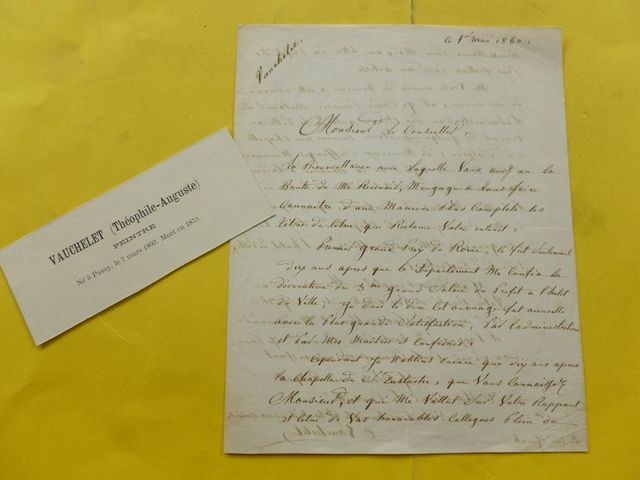 VAUCHELET (Théophile-Auguste)
PEINTRE
Né à Passy, le 7 mars 1802. Mort en 1873.
Vauchelet
ce 1er Mai 1860.
Monsieur Le Conseiller,
La Bienveillance avec Laquelle Vous avez eu la
Bonté de Me Recevoir, M'engage à Vous faire
Connaitre d'une Maniere Plus Complete les
titres de celui que Reclame Votre interet;
Premier Grand Prix de Rome, ce fut seulement
dix ans apres que le Departement Me Confia la
décoration du 3me grand Salon du Prefet à l'hotel
de Ville. Je dois le dire Cet ouvrage fut accueilli
avec la Plus grande Satisfaction, Par l'administration
et Par Mes Maitres et Confreres.
Cependant Je N'obtins encore que dix ans apres
la Chapelle de St Eustache, que Vous Connaissez
Monsieur, et qui Me Valut Sur Votre Rapport
et Celui de Vos honorables Collegues Plein de